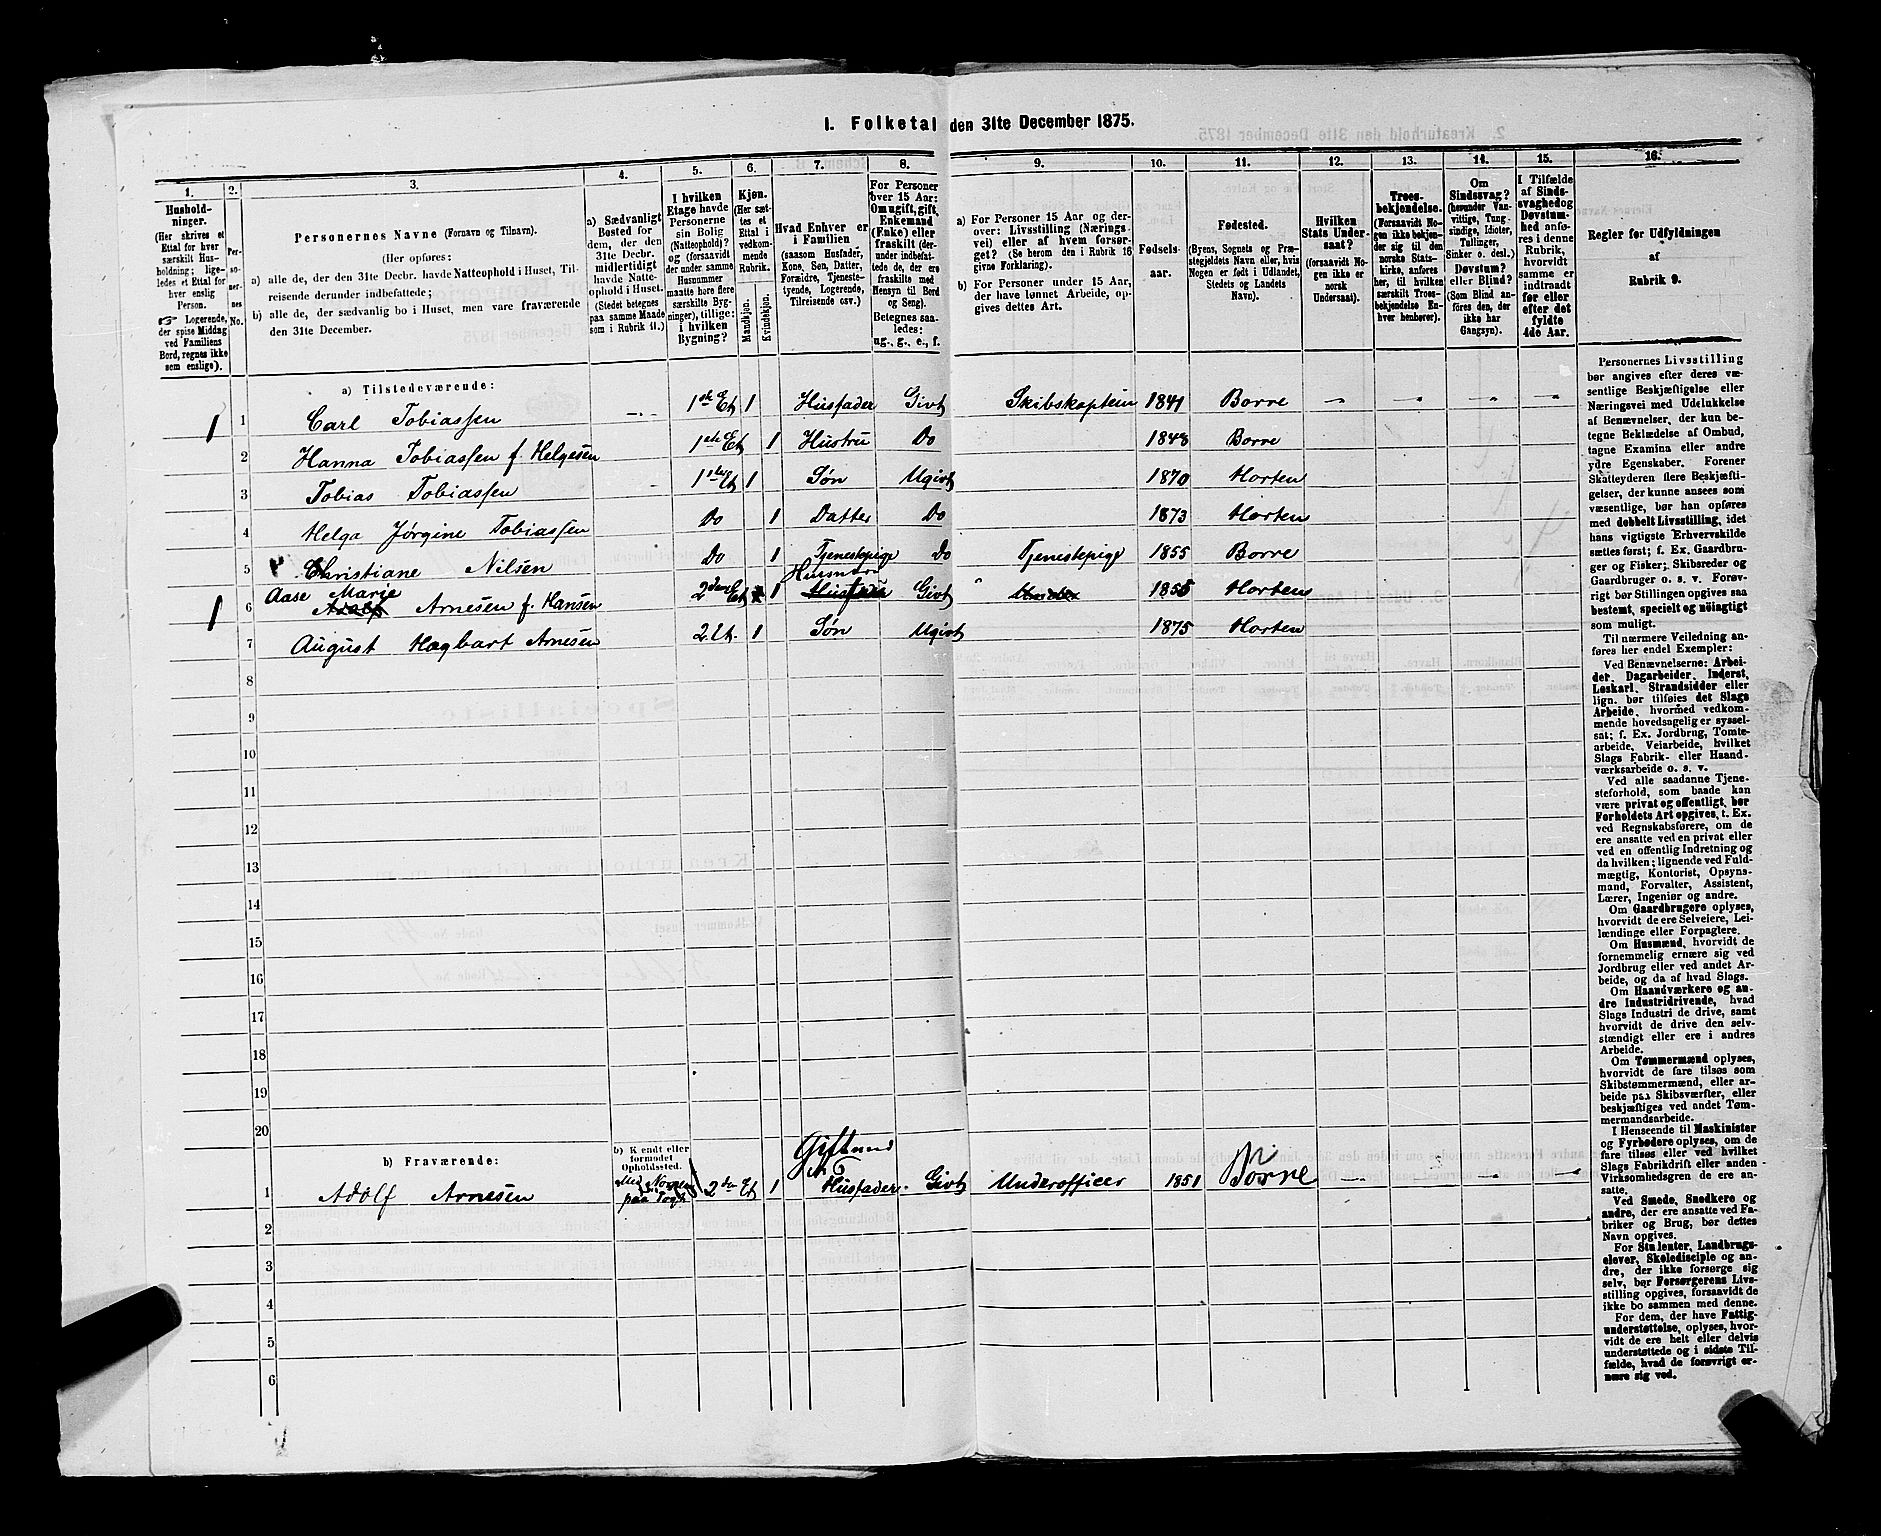 I. Folketal den 31te December 1875.
1. 2. 3. 4. 5. 6. 7. 8. 9. 10. 11. 12. 13. 14. 15. 16.
Hushold-
ninger.
(Her skrives et
Ettal for hver
særskilt Hus-
holdning; lige-
ledes et Ettal for
hver enslig
Person.
☞ Logerende,
der spise Middag
ved Familiens
Bord, regnes ikke
som enslige).
Per-
so-
ner-
nes
No.
Personernes Navne (Fornavn og Tilnavn).
(Her opføres:
a) alle de, der den 31te Decbr. havde Natteophold i Huset, Til-
reisende derunder indbefattede;
b) alle de, der sædvanlig bo i Huset, men vare fraværende
den 31te December.
a) Sædvanligt
Bosted for
dem, der den
31te Decbr.
midlertidigt
havde Natte-
ophold i Huset.
(Stedet betegnes
paa samme Maade
som i Rubrik 11.)
I hvilken
Etage havde
Personerne
sin Bolig
(Natteophold)?
og (forsaavidt
der under samme
Husnummer
maatte høre flere
særskilte Byg-
ninger), tillige:
i hvilken
Bygning?
Kjøn.
(Her sæt-
tes et
Ettal i
vedkom-
mende
Rubrik.
Mandkjøn.
Kvindekjøn.
Hvad Enhver er
i Familien
(saasom Husfader,
Kone, Søn, Datter,
Forældre, Tjeneste-
tyende, Logerende,
Tilreisende osv.)
For Personer
over 15 Aar:
Om ugift, gift,
Enkemand
(Enke) eller
fraskilt (der-
under indbefat-
tede de, der ere
fraskilte med
Hensyn til Bord
og Seng).
Betegnes saa-
ledes:
ug., g., e., f.
a) For Personer 15 Aar og der-
over: Livsstilling (Nærings-
vei) eller af hvem forsør-
get? (Se herom den i Rubrik 16
givne Forklaring).
b) For Personer under 15 Aar,
der have lønnet Arbeide, op-
gives dettes Art.
Fødsels-
aar.
Fødested.
(Byens, Sognets og Præ-
stegjeldets Navn eller, hvis
Nogen er født i Udlandet,
Stedets og Landets
Navn).
Hvilken
Stats Under-
saat?
(forsaavidt No-
gen ikke er
norsk
Undersaat).
Troes-
bekjendelse.
(Forsaavidt No-
gen ikke bekjen-
der sig til den
norske Stats-
kirke, anføres
her, til hvilken
særskilt Troes-
bekjendelse En-
hver henhører).
Om
Sindssvag?
(herunder Van-
vittige, Tung-
sindige, Idioter,
Tullinger,
Sinker o. desl.)
Døvstum?
eller Blind?
(Som Blind an-
føres den, der
ikke har
Gangsyn).
I Tilfælde
af Sinds-
svaghed og
Døvstum-
hed anfø-
res i denne
Rubrik,
hvorvidt
samme er
indtraadt
før eller
efter det
fyldte
4de Aar.
Regler for Udfyldningen
af
Rubrik 9.
a) Tilstedeværende:
1 1 Carl Tobiassen 1ste Et 1 Husfader Givt Skibskaptein 1841 Borre
2 Hanna Tobiassen f. Helgesen 1ste Et 1 Hustru Do 1848 Borre
3 Tobias Tobiassen 1ste Et 1 Søn Ugivt 1870 Horten
4 Helga Jørgine Tobiassen Do 1 Datter Do 1873 Horten
5 Christiane Nilsen Do 1 Tjenestepige Do Tjenestepige 1855 Borre
1 6 Aase Marie Adolf Arnesen f. Hansen 2den Et 1 Husmoder Givt 1856 Horten
7 August Hagbart Arnesen 2. Et. 1 Søn Ugivt 1875 Horten
8
9
10
11
12
13
14
15
16
17
18
19
20
b) Fraværende:
b) Kjendt eller
formodet
Opholdssted.
1 Adolf Arnesen paa Togt 2den Et 1 Husfader Givt Underofficer 1851 Borre
2
3
4
5
6
Personernes Livsstilling
bør angives efter deres væ-
sentlige Beskjæftigelse eller
Næringsvei med Udelukkelse
af Benævnelser, der kun be-
tegne Beklædelse af Ombud,
tagne Examina eller andre
ydre Egenskaber. Forener
Skatteyderen flere Beskjæfti-
gelser, der kunne ansees som
væsentlige, bør han opføres
med dobbelt Livsstilling, idet
hans vigtigste Erhvervskilde
sættes først; f. Ex. Gaardbru-
ger og Fisker; Skibsreder og
Gaardbruger o. s. v. Forøv-
rigt bør Stillingen opgives saa
bestemt, specielt og nøiagtigt
som muligt.
Til nærmere Veiledning an-
føres her endel Exempler:
Ved Benævnelserne: Arbei-
der, Dagarbeider, Inderst,
Løskarl, Strandsidder eller
lign. bør tilføies det Slags
Arbeide, hvormed vedkom-
mende hovedsagelig er syssel-
sat; f. Ex. Jordbrug, Tomte-
arbeide, Veiarbeide, hvilket
Slags Fabrik- eller Haand-
værksarbeide o. s. v.
Ved alle saadanne Tjene-
steforhold, som baade kan
være privat og offentligt, bør
Forholdets Art opgives, t. Ex.
ved Regnskabsførere, om de
ere ansatte ved en privat eller
ved en offentlig Indretning og
da hvilken; lignende ved Fuld-
mægtig, Kontorist, Opsyns-
mand, Forvalter, Assistent,
Lærer, Ingeniør og andre.
Om Gaardbrugere oplyses,
hvorvidt de ere Selveiere, Lei-
lændinge eller Forpagtere.
Om Husmænd, hvorvidt de
fornemmelig ernære sig ved
Jordbrug eller ved andet Ar-
beide, og da af hvad Slags.
Om Haandværkere og an-
dre Industridrivende, hvad
Slags Industri de drive, samt
hvorvidt de drive den selv-
stændigt eller ere i andres
Arbeide.
Om Tømmermænd oplyses,
hvorvidt de fare tilsøs som
Skibstømmermænd, eller ar-
beide paa Skibsværfter, eller
beskjæftiges ved andet Tøm-
mermandsarbeide.
I Henseende til Maskinister
og Fyrbødere oplyses, om de
fare tilsøs eller ved hvilket
Slags Fabrikdrift eller anden
Virksomhedsgren de ere an-
satte.
Ved Smede, Snedkere og
andre, der ere ansatte ved Fa-
briker og Brug, bør dettes
Navn opgives.
For Studenter, Landbrugs-
elever, Skoledisciple og an-
dre, der ikke forsørge sig
selv, bør Forsørgerens Livs-
stilling opgives, forsaavidt de
ikke bo sammen med denne.
For dem, der have Fattig-
understøttelse, oplyses, hvor-
vidt de ere helt eller delvis
understøttede og i sidste Til-
fælde, hvad de forøvrigt er-
nære sig ved.